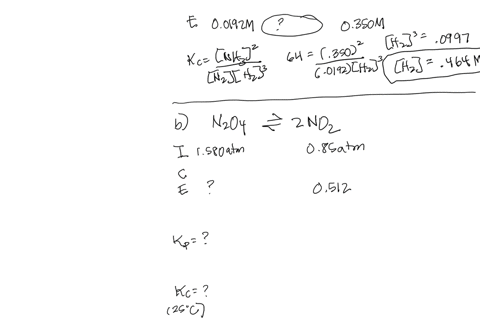 E 0.0192M ? 0.350M
Kc = [NH3]² / [N2][H2]³ 64 = (.350)² / (.0192)[H2]³ [H2]³ = .0997
[H2] = .464M
b) N2O4 ⇌ 2NO2
I 1.580atm 0.85atm
C
E ? 0.512
Kp = ?
Kc = ?
(25°C)